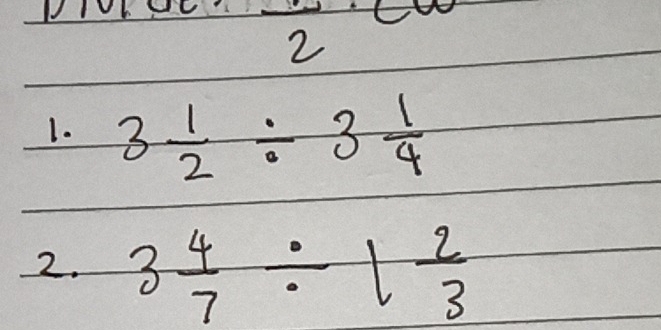 2
1. 3 1/2 ÷ 3 1/4
2. 3 4/7 ÷ 1 2/3